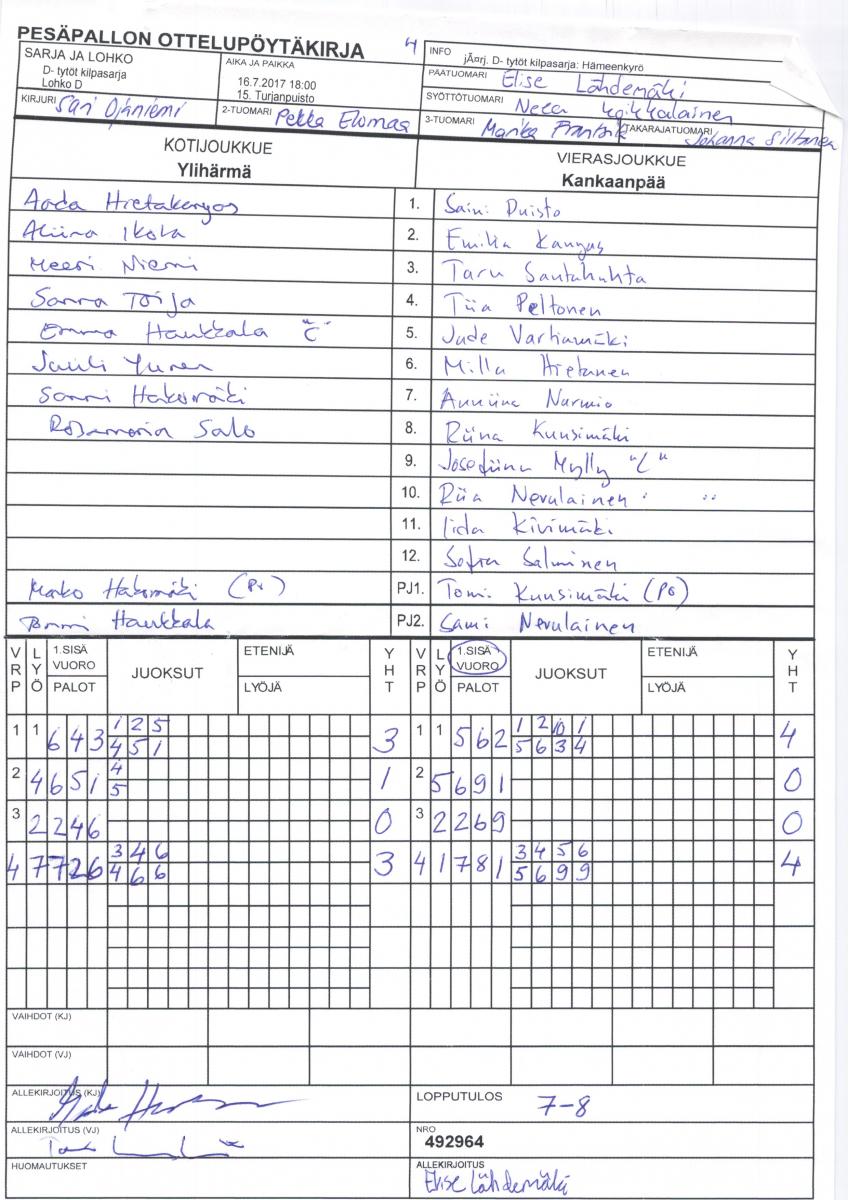 PESÄPALLON OTTELUPÖYTÄKIRJA 4
SARJA JA LOHKO
D- tytöt kilpasarja
Lohko D
AIKA JA PAIKKA
16.7.2017 18:00
15. Turjanpuisto
INFO
jÄ¤rj. D- tytöt kilpasarja: Hämeenkyrö
PÄÄTUOMARI Elise Lähdemäki
SYÖTTÖTUOMARI Neea
KIRJURI Sari Ojaniemi
2-TUOMARI Pekka Elomaa
3-TUOMARI Marika
TAKARAJATUOMARI Johanna Siltanen
KOTIJOUKKUE
Ylihärmä
VIERASJOUKKUE
Kankaanpää
Aada Hietakangas 1. Saini Duisto
Aliina Ikola 2. Emilia Kangas
Meeri Niemi 3. Taru Santahuhta
Sanna Toija 4. Tiia Peltonen
Emma Haukkala "C" 5. Jade Varhamäki
6. Milla Hietanen
Sanni Hakomäki 7. Anniina Nurmio
Rosamaria Salo 8. Riina Kuusimäki
9. Josefiina Mylly "C"
10. Riia Nevulainen
11. Iida Kivimäki
12. Sofia Salminen
Marko Hakomäki PJ1. Tomi Kuusimäki (PG)
Tommi Haukkala PJ2. Sami Nevulainen
VRP LYÖ 1.SISÄ VUORO PALOT JUOKSUT ETENIJÄ LYÖJÄ YHT VRP LYÖ 1.SISÄ VUORO PALOT JUOKSUT ETENIJÄ LYÖJÄ YHT
1 2 5 1 2 10 1
1 1 6 4 3 4 5 1 3 1 1 5 6 2 5 6 3 4 4
4
2 4 6 5 1 5 1 2 5 6 9 1 0
3 2 2 4 6 0 3 2 2 6 9 0
3 4 6 3 4 5 6
4 7 7 2 6 4 6 6 3 4 1 7 8 1 5 6 9 9 4
VAIHDOT (KJ)
VAIHDOT (VJ)
ALLEKIRJOITUS (KJ)
LOPPUTULOS 7-8
ALLEKIRJOITUS (VJ)
NRO
492964
HUOMAUTUKSET
ALLEKIRJOITUS
Elise Lähdemäki